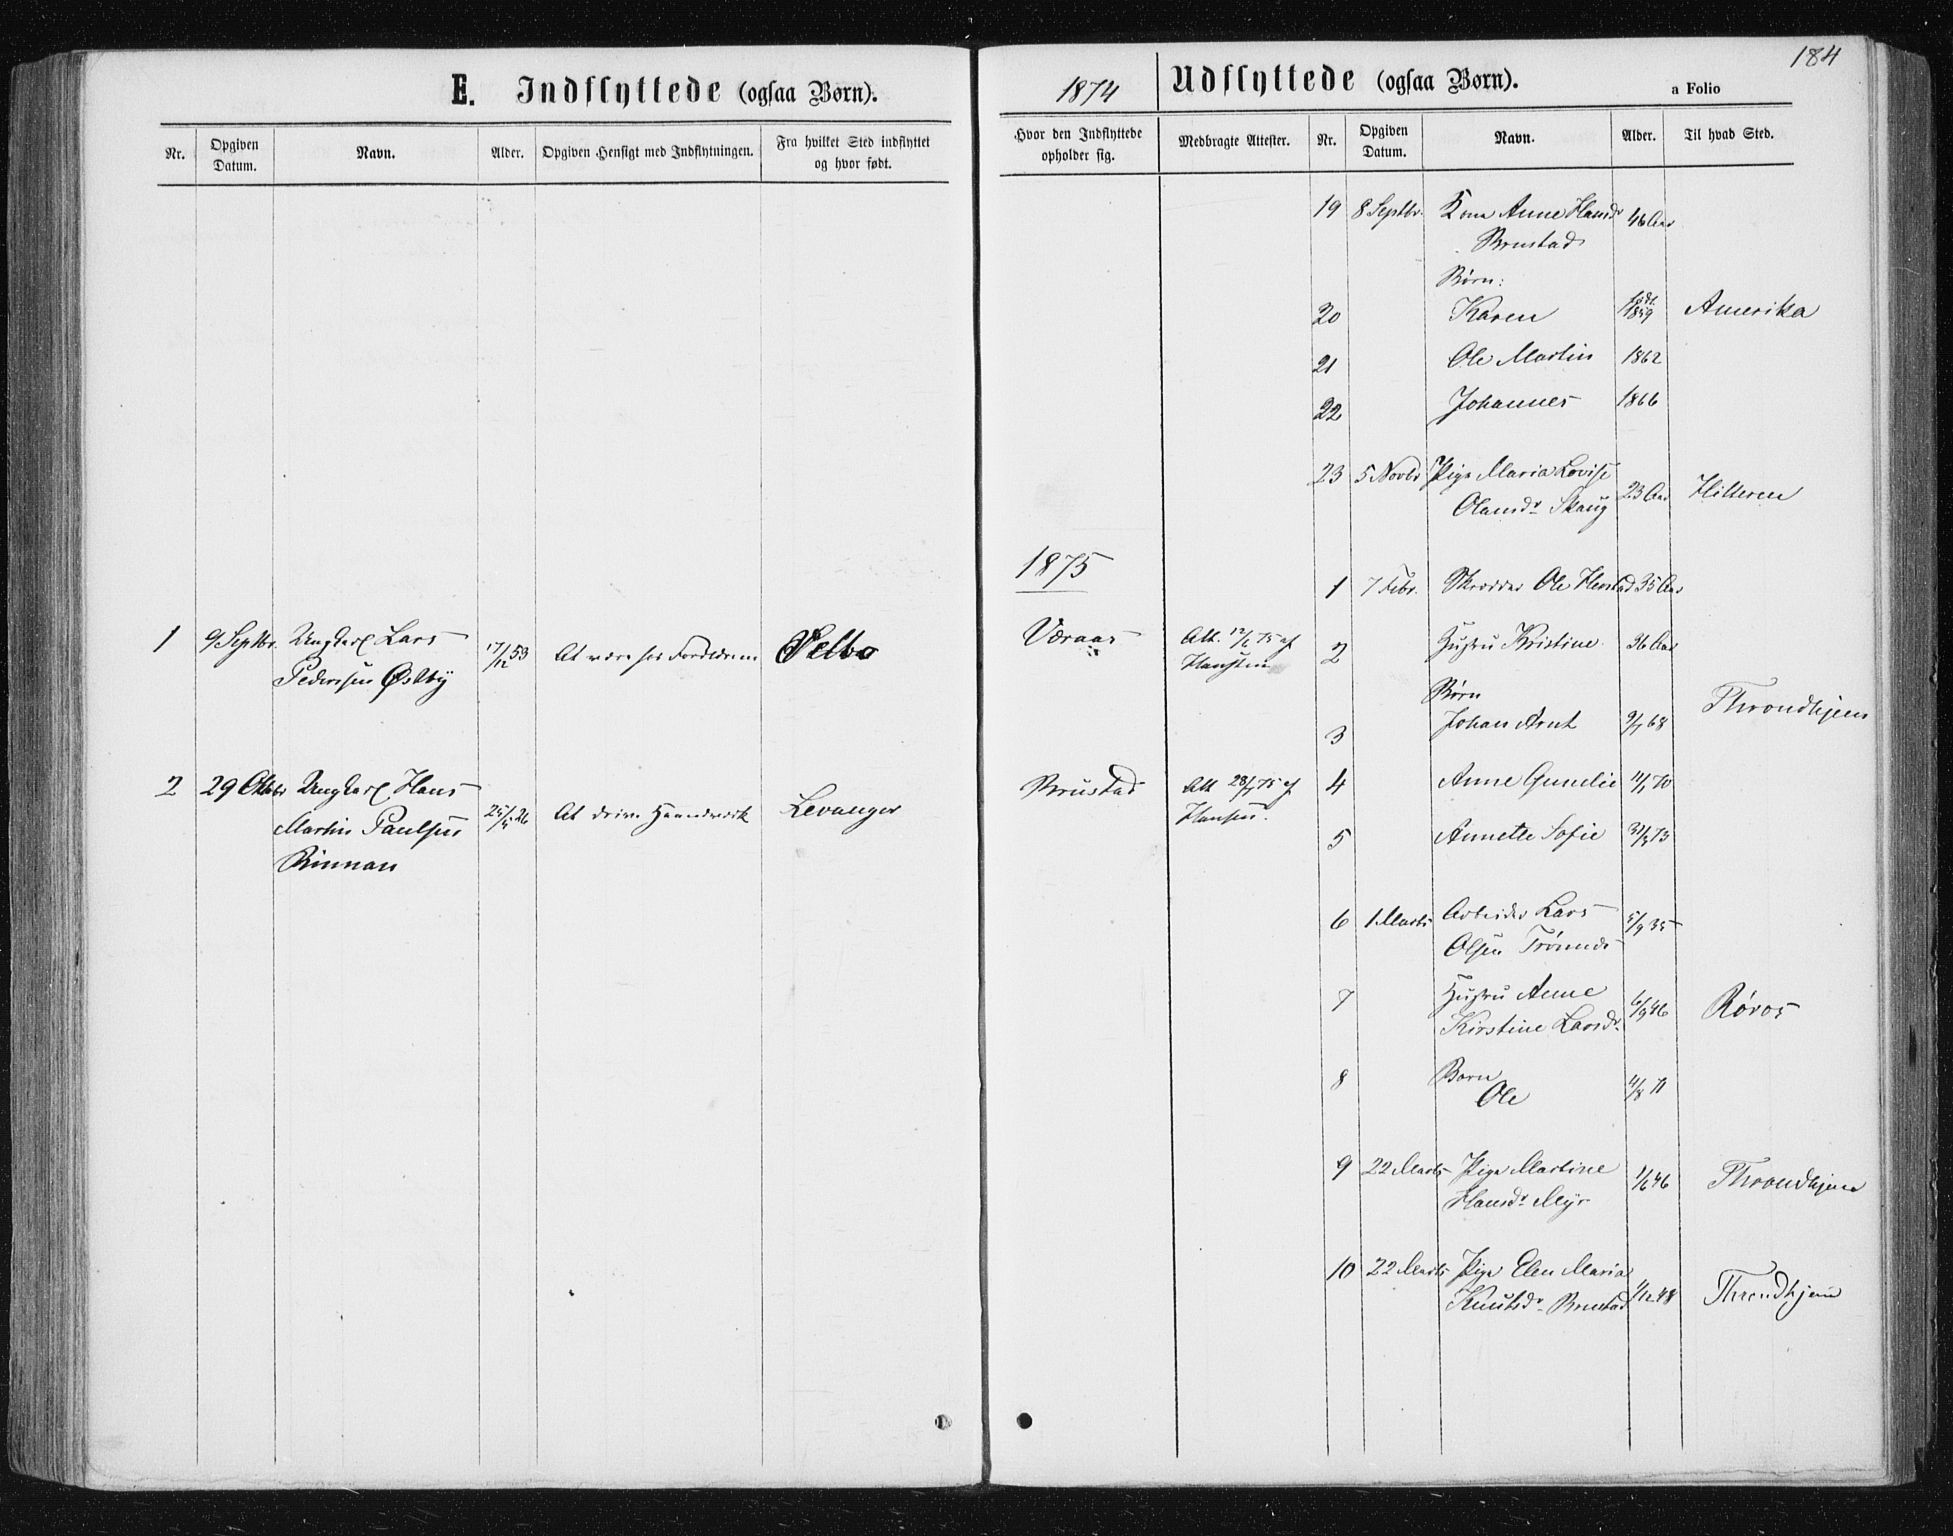 184
E. Indflyttede (ogsaa Børn).
Nr.
Opgiven Datum.
Navn.
Alder.
Opgiven Hensigt med Indflytningen.
Fra hvilket Sted indflyttet og hvor født.
1 9 Septbr. Ungkarl Lars 17/12 53 At være hos Forældrene Selbo
Pedersen Østby
2 29 Oktbr Ungkarl Hans 25/4 26 At drive Haandværk Levanger
Martin Paulsen
Rinnan
1874
Udflyttede (ogsaa Børn).
a Folio
Hvor den Indflyttede opholder sig.
Medbragte Attester.
Nr.
Opgiven Datum.
Navn.
Alder.
Til hvad Sted.
19 8 Septbr. Kone Anne Hansdr 46 Aar
Brustad
Børn:
20 Karen født 1859 Amerika
21 Ole Martin 1862
22 Johannes 1866
23 5 Novbr Pige Maria Lovise 23 Aar Hitteren
Olausdr Skaug
1875
1 7 Febr. Skrædder Ole 35 Aar
Væraas Att. 75 af
2 Hustru Kristine 36 Aar
Børn
3 Johan Arnt 68 Throndhjem
Brustad Att 75 af
4 Anne Gunelie 70
5 Annette Sofie 73
6 1 Marts Arbeider Lars 5/9 35
Olsen Trønnes
7 Hustru Anne 6/9 46 Røros
Kirstine Larsdr.
8 Barn
Ole 11/8 71
9 22 Marts Pige Martine 46 Throndhjem
Hansdr Myr
10 22 Marts Pige Elen Maria 48 Throndhjem
Knutsdr. Brustad